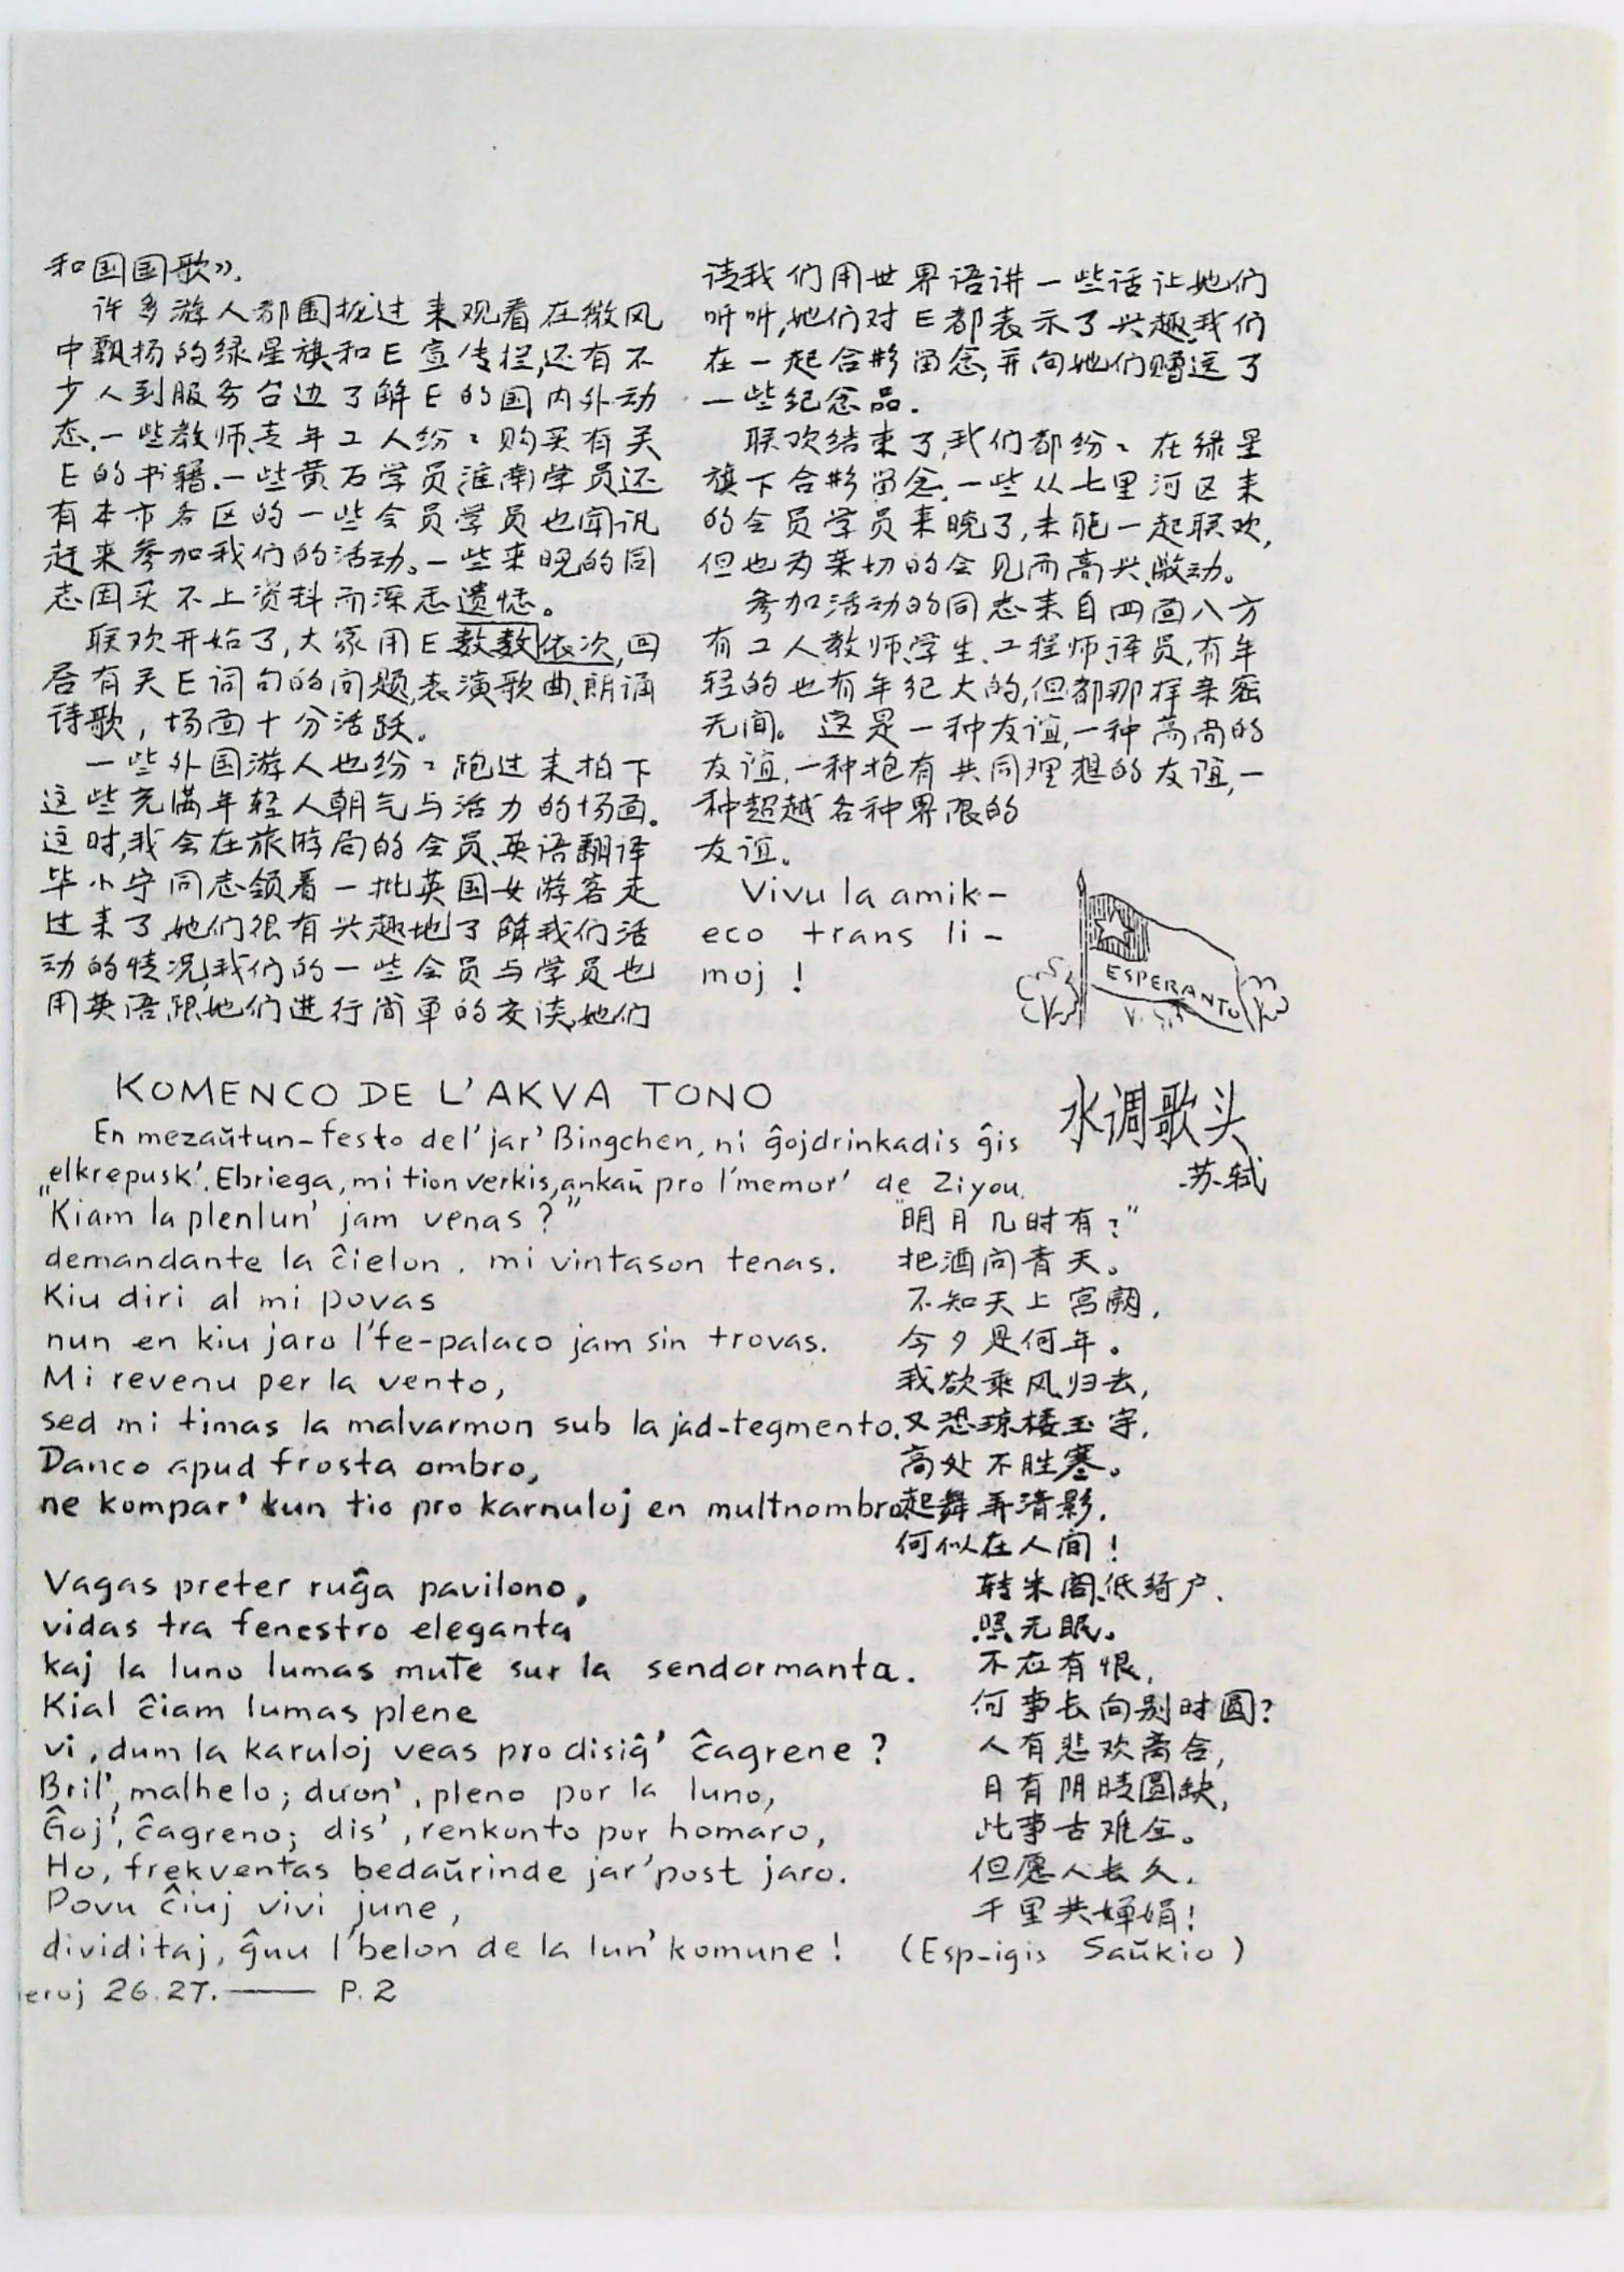 和国国歌》.
许多游人都围拢过来观看在微风
中飘扬的绿星旗和E宣传栏,还有不
少人到服务台边了解E的国内外动
态.一些教师、青年工人纷〻购买有关
E的书籍.一些黄石学员、淮南学员还
有本市各区的一些会员学员也闻讯
赶来参加我们的活动。一些来晚的同
志因买不上资料而深表遗憾。
联欢开始了,大家用E数数依次,回
答有关E词句的问题,表演歌曲、朗诵
诗歌,场面十分活跃。
一些外国游人也纷〻跑过来拍下
这些充满年轻人朝气与活力的场面。
这时,我会在旅游局的会员、英语翻译
毕小宁同志领着一批英国女游客走
过来了,她们很有兴趣地了解我们活
动的情况,我们的一些会员与学员也
用英语跟她们进行简单的交谈,她们
请我们用世界语讲一些话让她们
听听,她们对E都表示了兴趣,我们
在一起合影留念,并向她们赠送了
一些纪念品.
联欢结束了,我们都纷〻在绿星
旗下合影留念.一些从七里河区来
的会员学员来晚了,未能一起联欢,
但也为亲切的会见而高兴、激动。
参加活动的同志来自四面八方
有工人、教师、学生、工程师、译员,有年
轻的也有年纪大的,但都那样亲密
无间。这是一种友谊,一种高尚的
友谊,一种抱有共同理想的友谊,一
种超越各种界限的
友谊。
Vivu la amik-
eco trans li-
moj !
ESPERANTO
KOMENCO DE L'AKVA TONO
En mezaŭtun-festo del' jar' Bingchen, ni ĝojdrinkadis ĝis
elkrepusk'. Ebriega, mi tion verkis, ankaŭ pro l'memor' de Ziyou.
"Kiam la plenlun' jam venas ?"
demandante la ĉielon, mi vintason tenas.
Kiu diri al mi povas
nun en kiu jaro l'fe-palaco jam sin trovas.
Mi revenu per la vento,
sed mi timas la malvarmon sub la jad-tegmento.
Danco apud frosta ombro,
ne kompar' kun tio pro karnuloj en multnombro.
Vagas preter ruĝa pavilono,
vidas tra fenestro eleganta
kaj la luno lumas mute sur la sendormanta.
Kial ĉiam lumas plene
vi, dum la karuloj veas pro disiĝ' ĉagrene ?
Bril', malhelo; duon', pleno por la luno,
Ĝoj', ĉagreno; dis', renkonto por homaro,
Ho, frekventas bedaŭrinde jar'post jaro.
Povu ĉiuj vivi june,
dividitaj, ĝuu l'belon de la lun' komune !
eroj 26.27. —— P.2
水调歌头
苏轼
"明月几时有?"
把酒问青天。
不知天上宫阙,
今夕是何年。
我欲乘风归去,
又恐琼楼玉宇,
高处不胜寒。
起舞弄清影,
何似在人间!
转朱阁、低绮户、
照无眠。
不应有恨,
何事长向别时圆?
人有悲欢离合,
月有阴晴圆缺,
此事古难全。
但愿人长久,
千里共婵娟!
(Esp-igis Saŭkio)